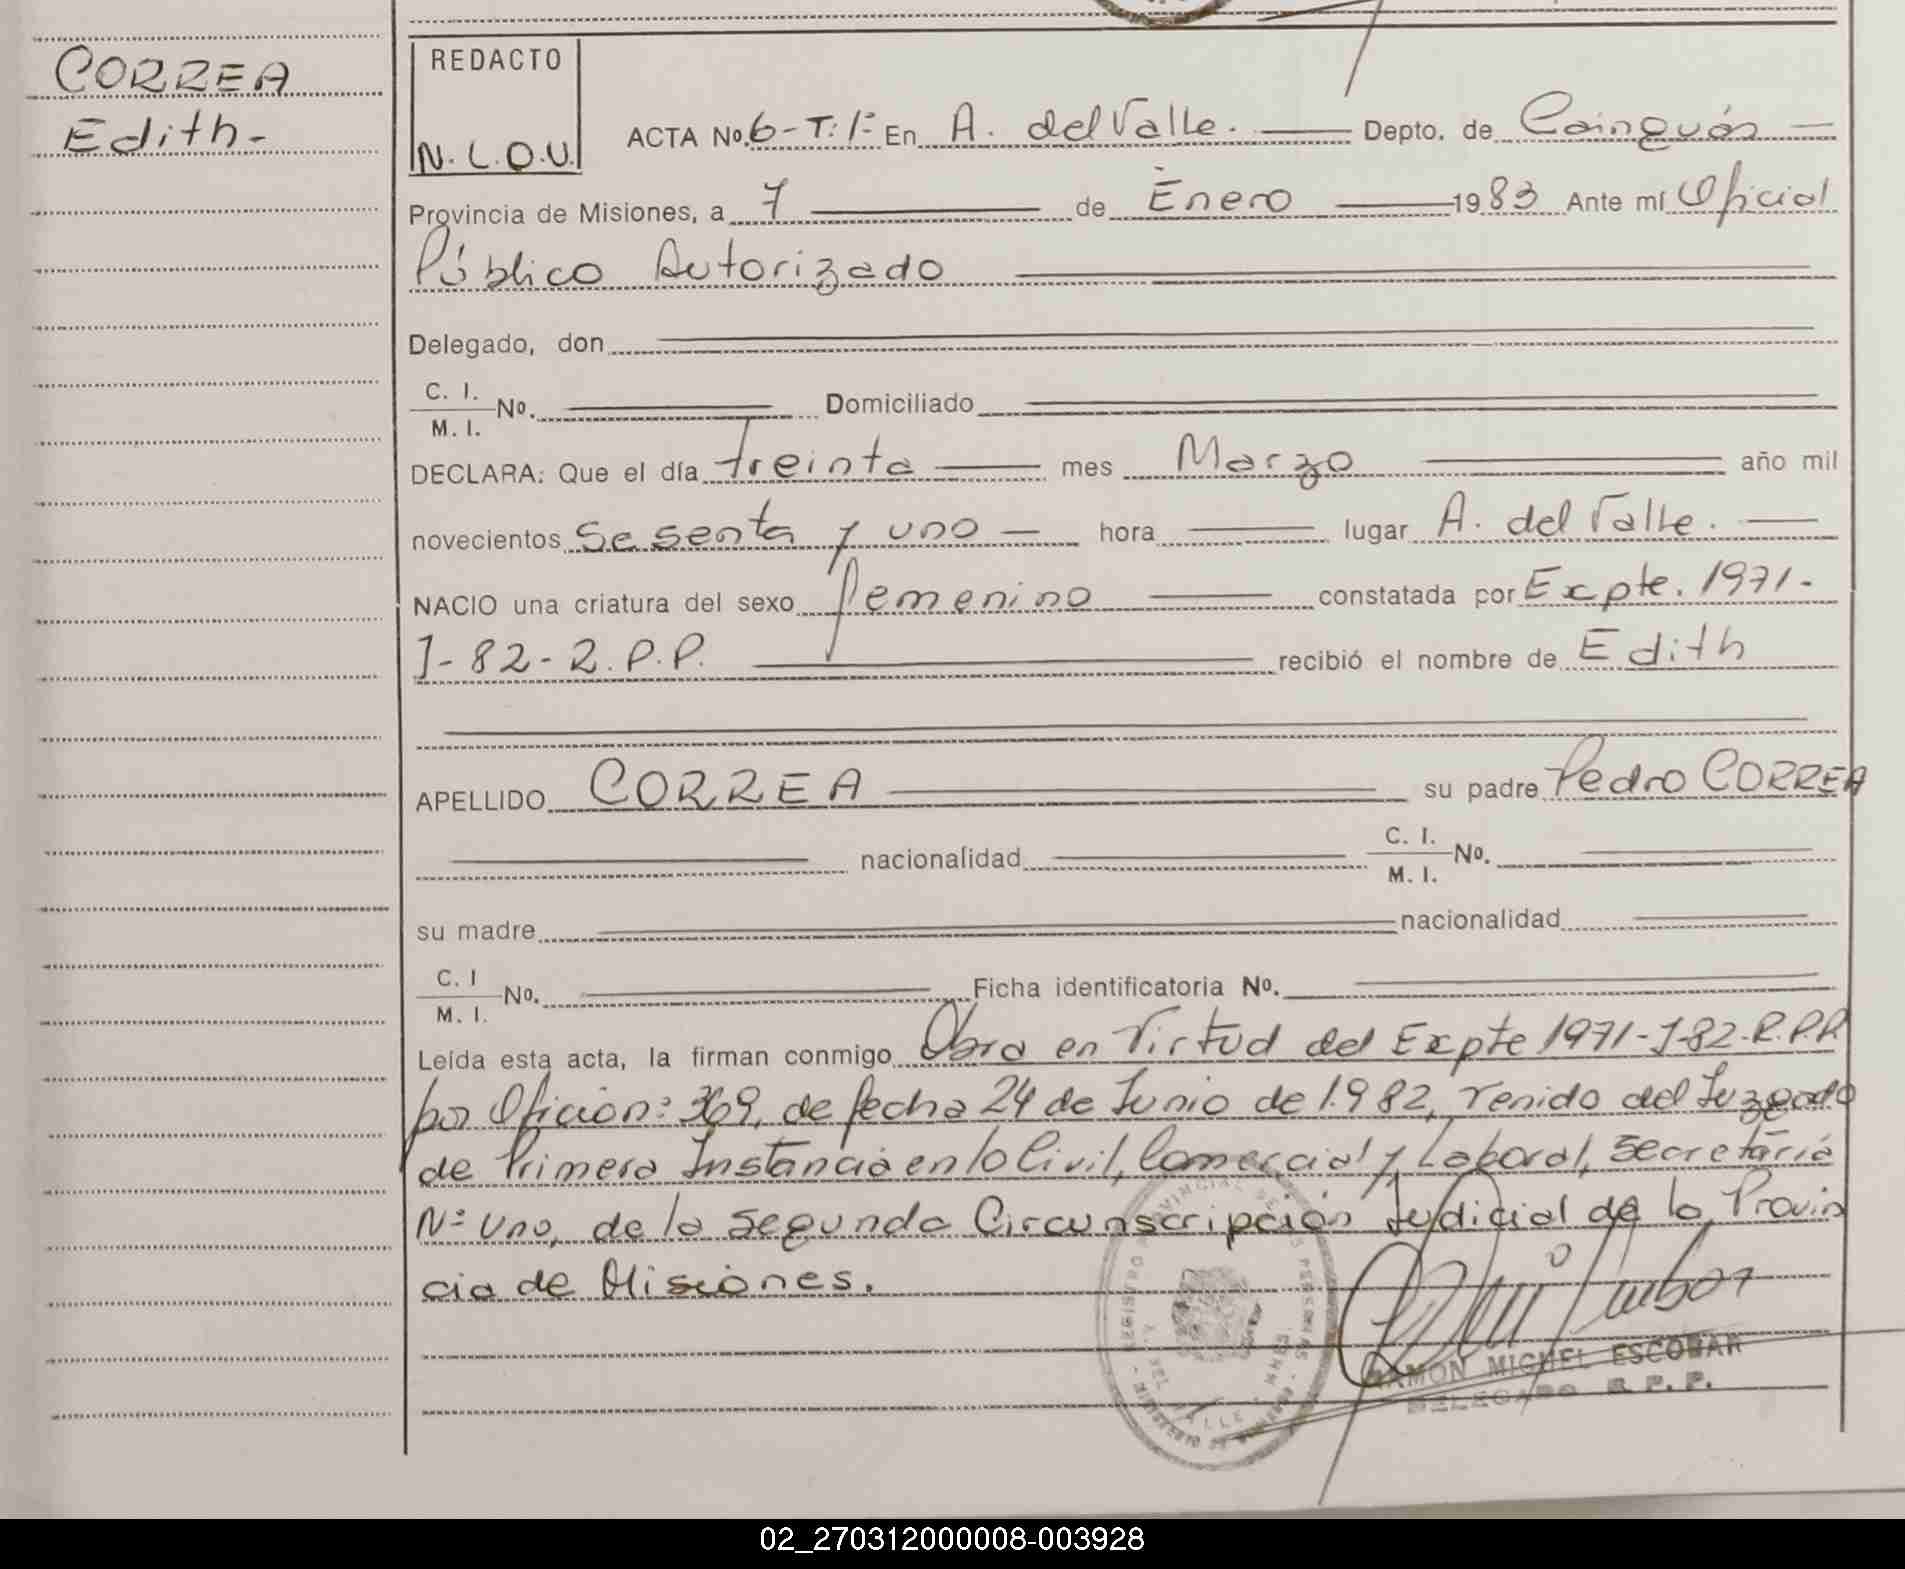 CORREA
Edith-
REDACTO
N.L.O.U.
ACTA No. 6-T:1º En A. del Valle. Depto. de Cainguás
Provincia de Misiones, a 7 de Enero 1983 Ante mí Oficial
Público Autorizado
Delegado, don
C. I.
M. I. No. Domiciliado
DECLARA: Que el día treinta mes Marzo año mil
novecientos sesenta y uno hora lugar A. del Valle.
NACIO una criatura del sexo femenino constatada por Expte. 1971-
J-82-R.P.P. recibió el nombre de Edith
APELLIDO CORREA su padre Pedro CORREA
nacionalidad C. I.
M. I. No.
su madre nacionalidad
C. I
M. I. No. Ficha identificatoria No.
Leída esta acta, la firman conmigo Obra en Virtud del Expte 1971-J-82-R.P.P.
por Oficio nº 369, de fecha 24 de Junio de 1.982, venido del Juzgado
de Primera Instancia en lo Civil, Comercial y Laboral, Secretaría
Nº Uno, de la Segunda Circunscripción Judicial de la Provin
cia de Misiones.
RAMON MIGUEL ESCOBAR
DELEGADO R.P.P.
02_270312000008-003928